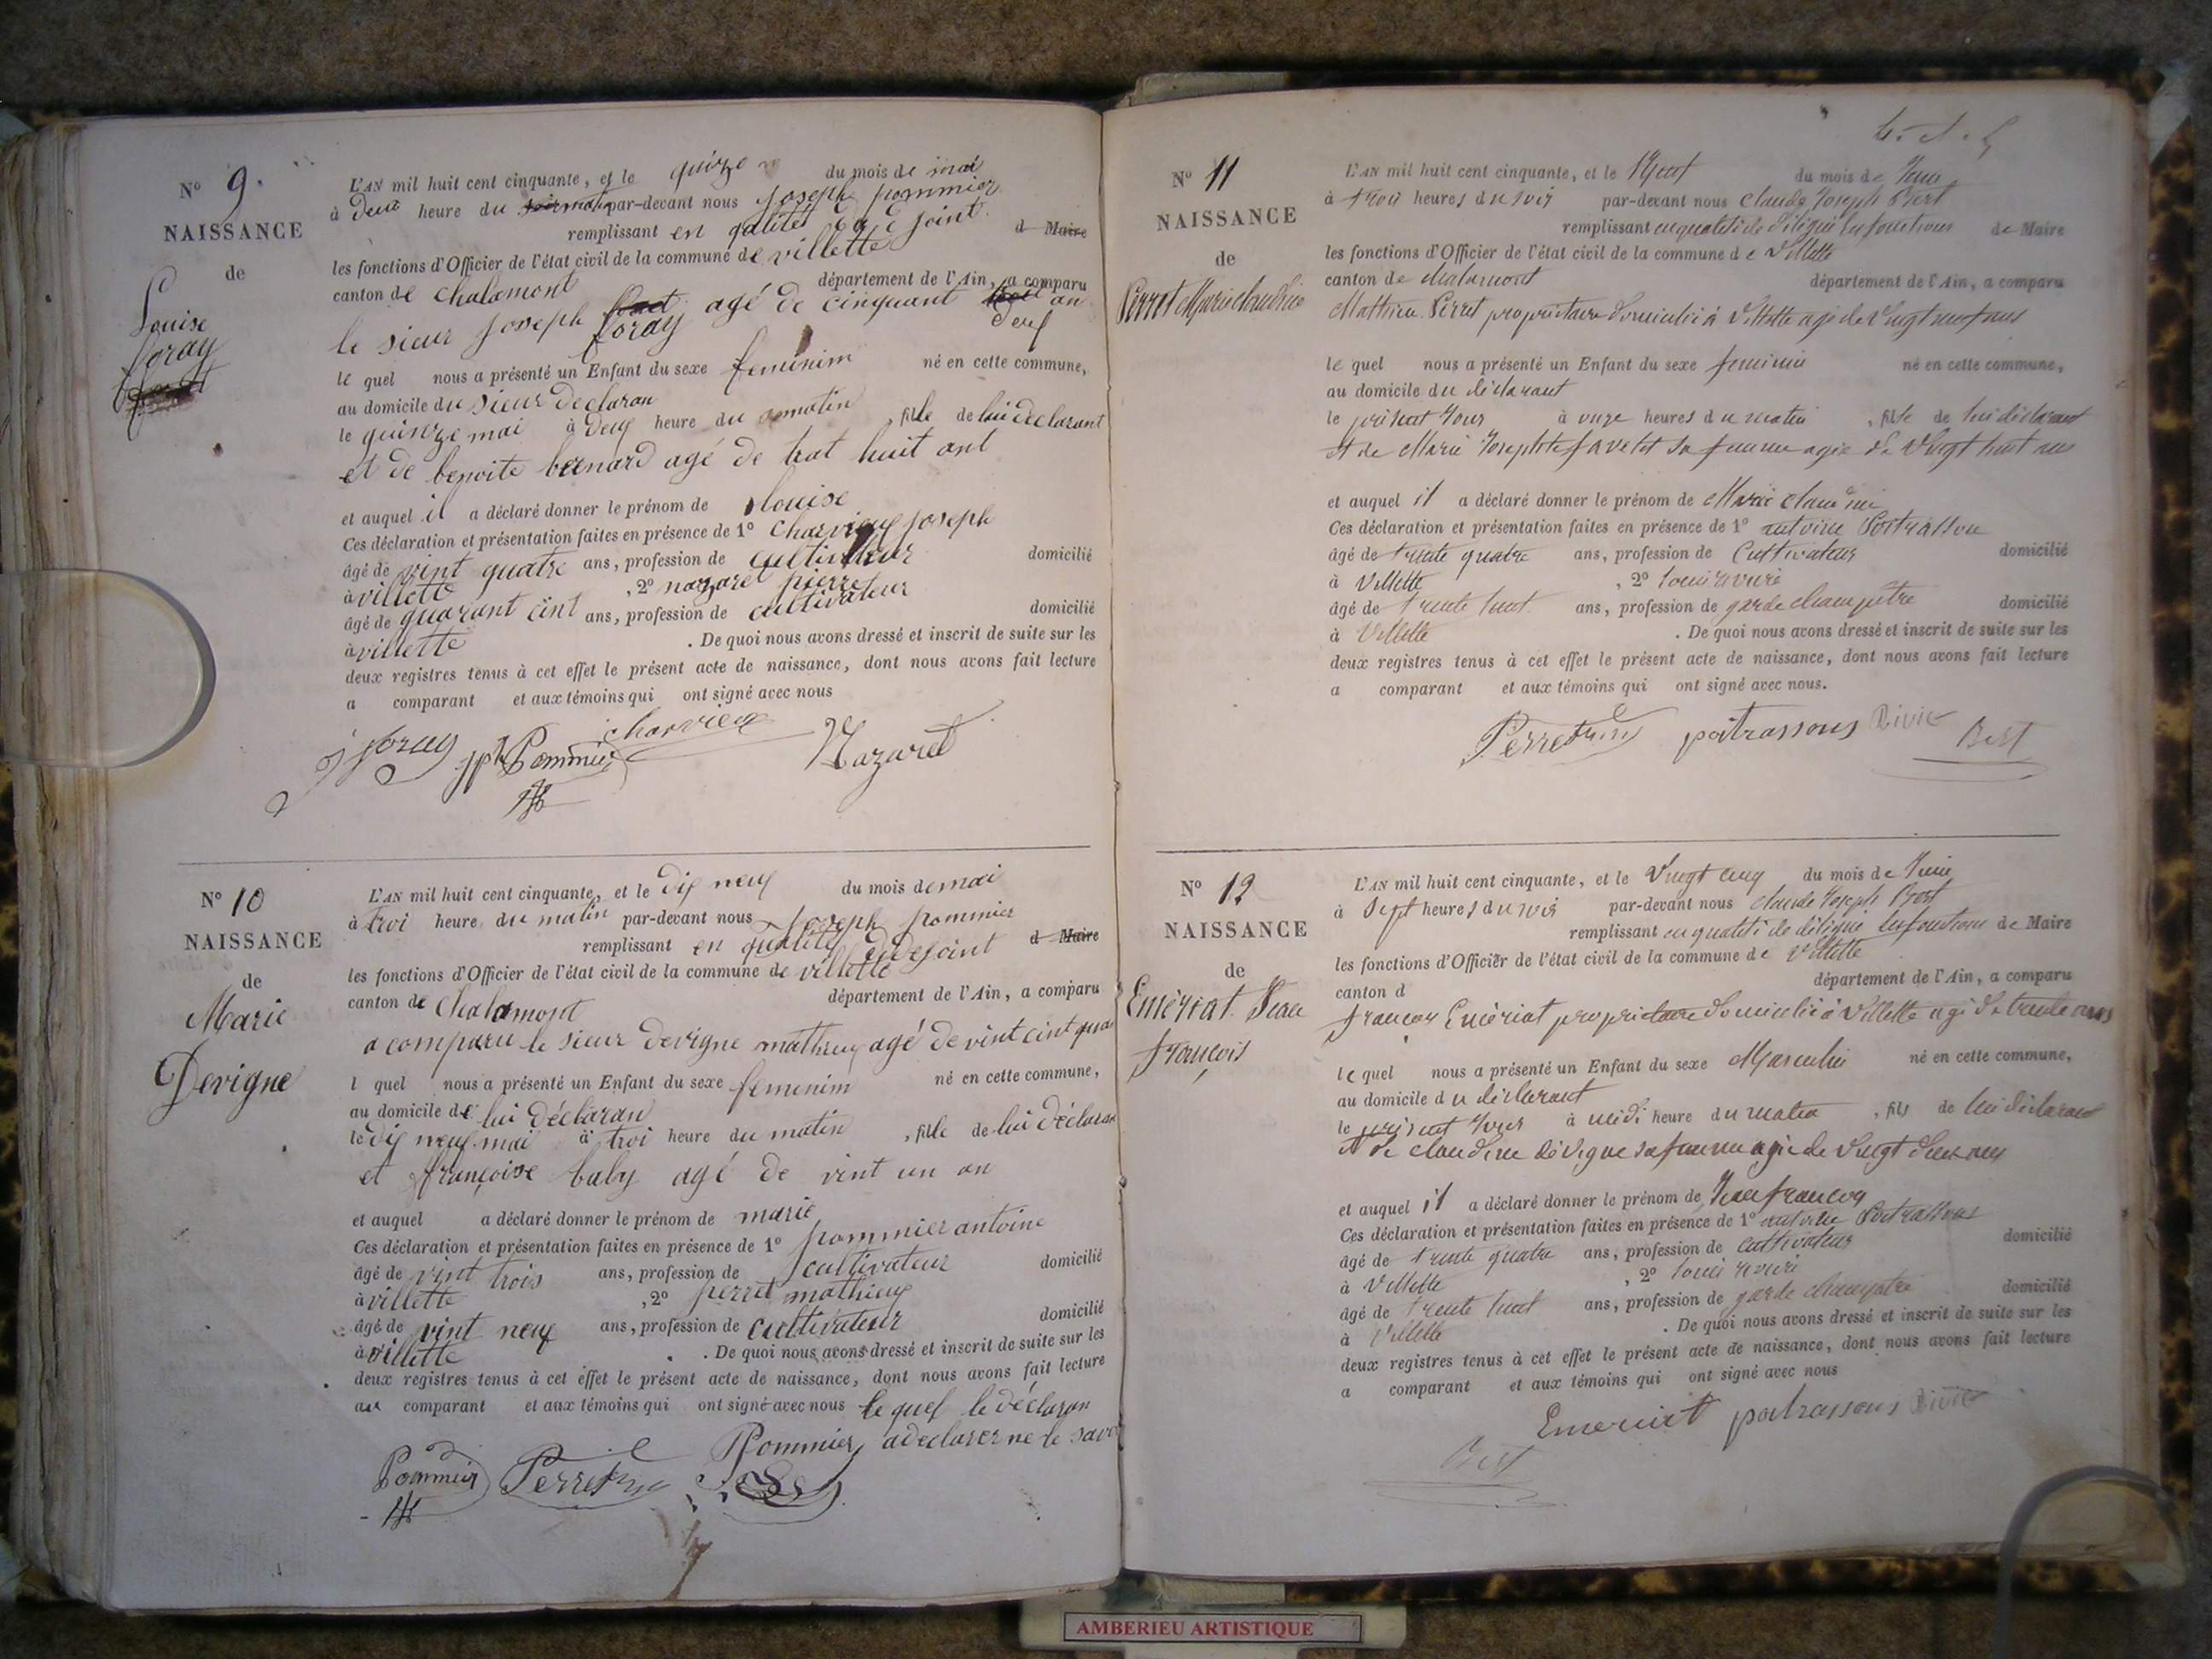 N° 9.
NAISSANCE
de
Louise
foray
L'AN mil huit cent cinquante, et le quize du mois de mai
à deux heure du matin par-devant nous joseph pommier
remplissant en qalité d'adjoint d Maire
les fonctions d'Officier de l'état civil de la commune de villette
canton de chalamont département de l'Ain, a comparu
le sieur joseph foray agé de cinquant deux an
le quel nous a présenté un Enfant du sexe feminim né en cette commune,
au domicile du sieur declaran
le quinze mai à deux heure du matin, fille de lui déclarant
et de benoite bernard agé de trat huit ant
et auquel il a déclaré donner le prénom de louise
Ces déclaration et présentation faites en présence de 1° charvieux joseph
âgé de vint quatre ans, profession de cultivateur domicilié
à villette, 2° nazaret pierre
âgé de quarant cint ans, profession de cultivateur domicilié
à villette. De quoi nous avons dressé et inscrit de suite sur les
deux registres tenus à cet effet le présent acte de naissance, dont nous avons fait lecture
a comparant et aux témoins qui ont signé avec nous
j foray jph Pommier charvieux Nazaret
N° 10
NAISSANCE
de
Marie
Devigne
L'AN mil huit cent cinquante, et le dix neux du mois de mai
à troi heure du matin par-devant nous joseph pommier
remplissant en qualité d'adjoint d Maire
les fonctions d'Officier de l'état civil de la commune de villette
canton de chalamont département de l'Ain, a comparu
a comparu le sieur devigne mathieu agé de vint cint
l quel nous a présenté un Enfant du sexe femenim né en cette commune,
au domicile de lui déclaran
le dix neux mai à troi heure du matin, fille de lui déclaran
et françoise baby agé de vint un an
et auquel a déclaré donner le prénom de marie
Ces déclaration et présentation faites en présence de 1° pommier antoine
âgé de vint trois ans, profession de cultivateur domicilié
à villette, 2° perret mathieu
âgé de vint neux ans, profession de cultivateur domicilié
à villette. De quoi nous avons dressé et inscrit de suite sur les
deux registres tenus à cet effet le présent acte de naissance, dont nous avons fait lecture
au comparant et aux témoins qui ont signé avec nous le quel le déclaran
a declarer ne le savoi
Pommier Perret Pommier
N° 11
NAISSANCE
de
Perret Marie Claudine
L'AN mil huit cent cinquante, et le du mois de
à trois heures du soir par-devant nous Claude Joseph Bert
remplissant en qualité de délégué les fonctions de Maire
les fonctions d'Officier de l'état civil de la commune de Villette
canton de chalamont département de l'Ain, a comparu
Mathieu Perret propriétaire domicilié à Villette agé de Vingt neuf ans
le quel nous a présenté un Enfant du sexe feminin né en cette commune,
au domicile du déclarant
le présent jour à onze heures du matin, fille de lui déclarant
et de Marie Josephte favetot sa femme agée de Vingt huit ans
et auquel il a déclaré donner le prénom de Marie claudine
Ces déclaration et présentation faites en présence de 1° antoine Portrasson
âgé de trente quatre ans, profession de Cultivateur domicilié
à Villette, 2° louis rivoire
âgé de trente huit ans, profession de garde champêtre domicilié
à Villette. De quoi nous avons dressé et inscrit de suite sur les
deux registres tenus à cet effet le présent acte de naissance, dont nous avons fait lecture
a comparant et aux témoins qui ont signé avec nous.
Perret potrassons Bert
N° 12
NAISSANCE
de
Emériat Jean
françois
L'AN mil huit cent cinquante, et le Vingt cinq du mois de Juin
à Sept heures du soir par-devant nous claude Joseph Bert
remplissant en qualité de délégué les fonctions de Maire
les fonctions d'Officier de l'état civil de la commune de Villette
canton d département de l'Ain, a comparu
françois Emériat propriétaire domicilié à Villette agé de trente ans
le quel nous a présenté un Enfant du sexe Masculin né en cette commune,
au domicile du déclarant
le présent jour à midi heure du matin, fils de lui déclarant
et de claudine dévigne sa femme agée de Vingt deux ans
et auquel il a déclaré donner le prénom de Jean françois
Ces déclaration et présentation faites en présence de 1° antoine Portrassons
âgé de trente quatre ans, profession de cultivateur domicilié
à Villette, 2° louis rivoire
âgé de trente huit ans, profession de garde champêtre domicilié
à Villette. De quoi nous avons dressé et inscrit de suite sur les
deux registres tenus à cet effet le présent acte de naissance, dont nous avons fait lecture
a comparant et aux témoins qui ont signé avec nous
Emeriat potrassons
Bert
AMBERIEU ARTISTIQUE